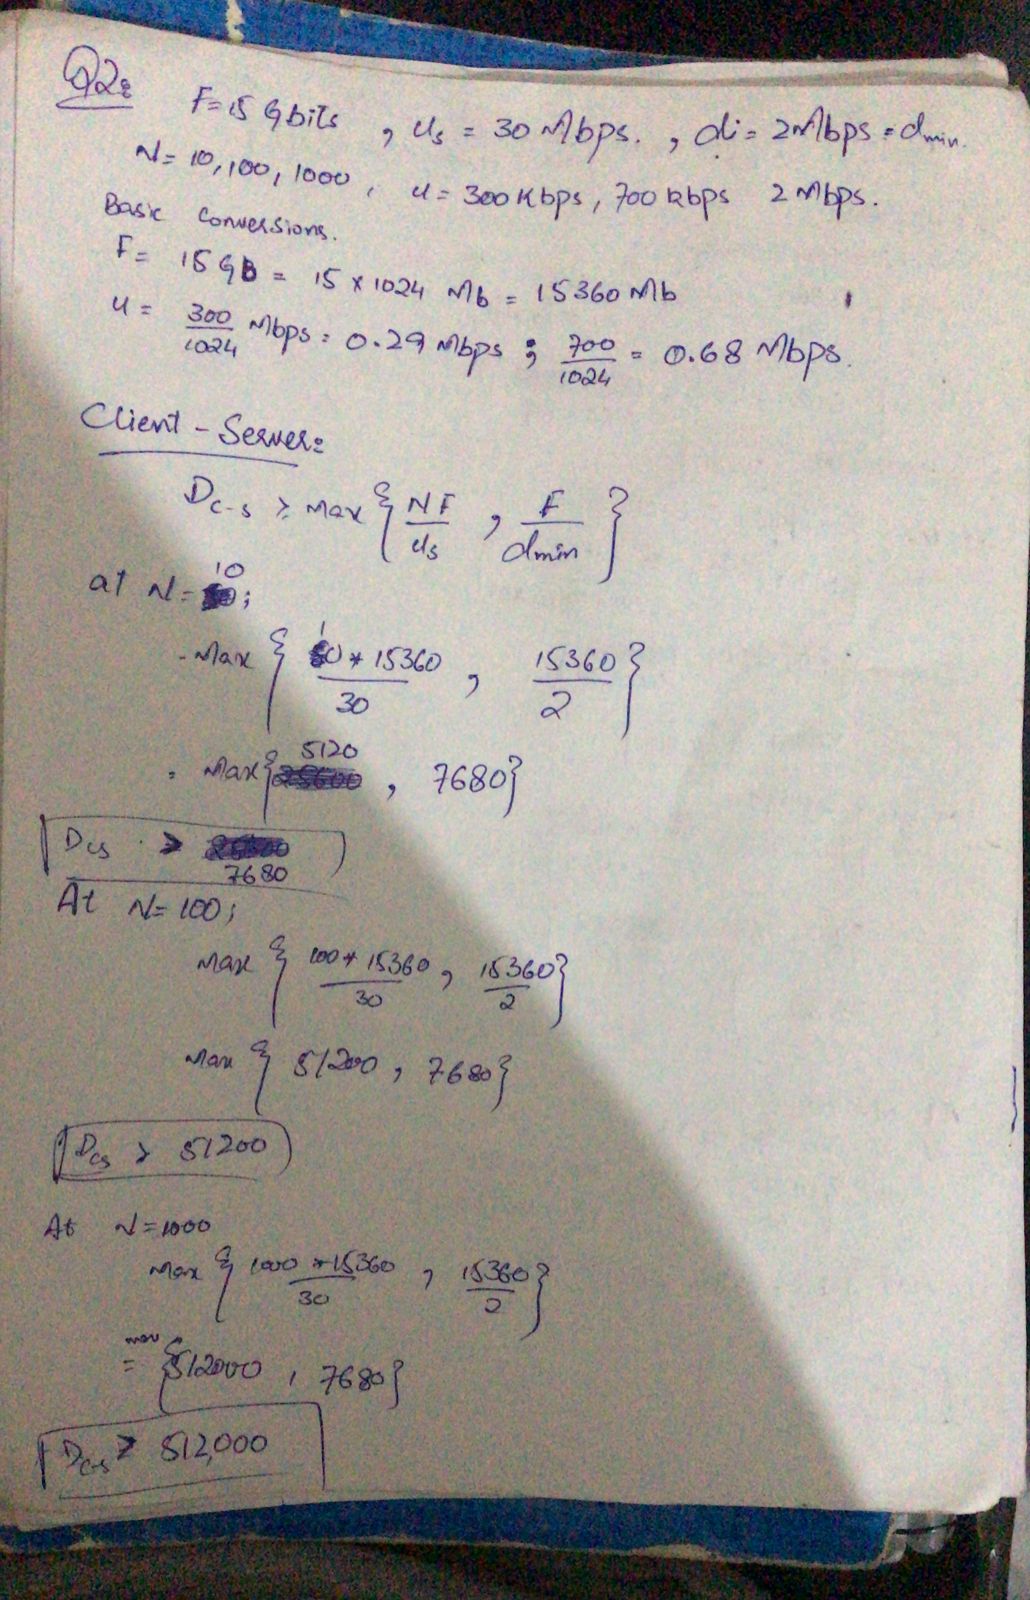 Q2:
F=15 Gbits , us = 30 Mbps. , di = 2Mbps = dmin.
N= 10,100, 1000 , u = 300 Kbps, 700 kbps 2 Mbps.
Basic Conversions.
F= 15 GB = 15 × 1024 Mb = 15360 Mb
u = 300/1024 Mbps = 0.29 Mbps ; 700/1024 = 0.68 Mbps.
Client - Server:
Dc-s ≥ max { NF/us , F/dmin }
at N = 10 ;
- Max { 10 * 15360/30 , 15360/2 }
= Max { 5120 , 7680}
Dcs > 7680
At N= 100;
Max { 100 * 15360/30 , 15360/2 }
Max { 51200 , 7680}
Dcs > 51200
At N=1000
Max { 1000 * 15360/30 , 15360/2 }
= max {512000 , 7680}
Dc-s > 512,000